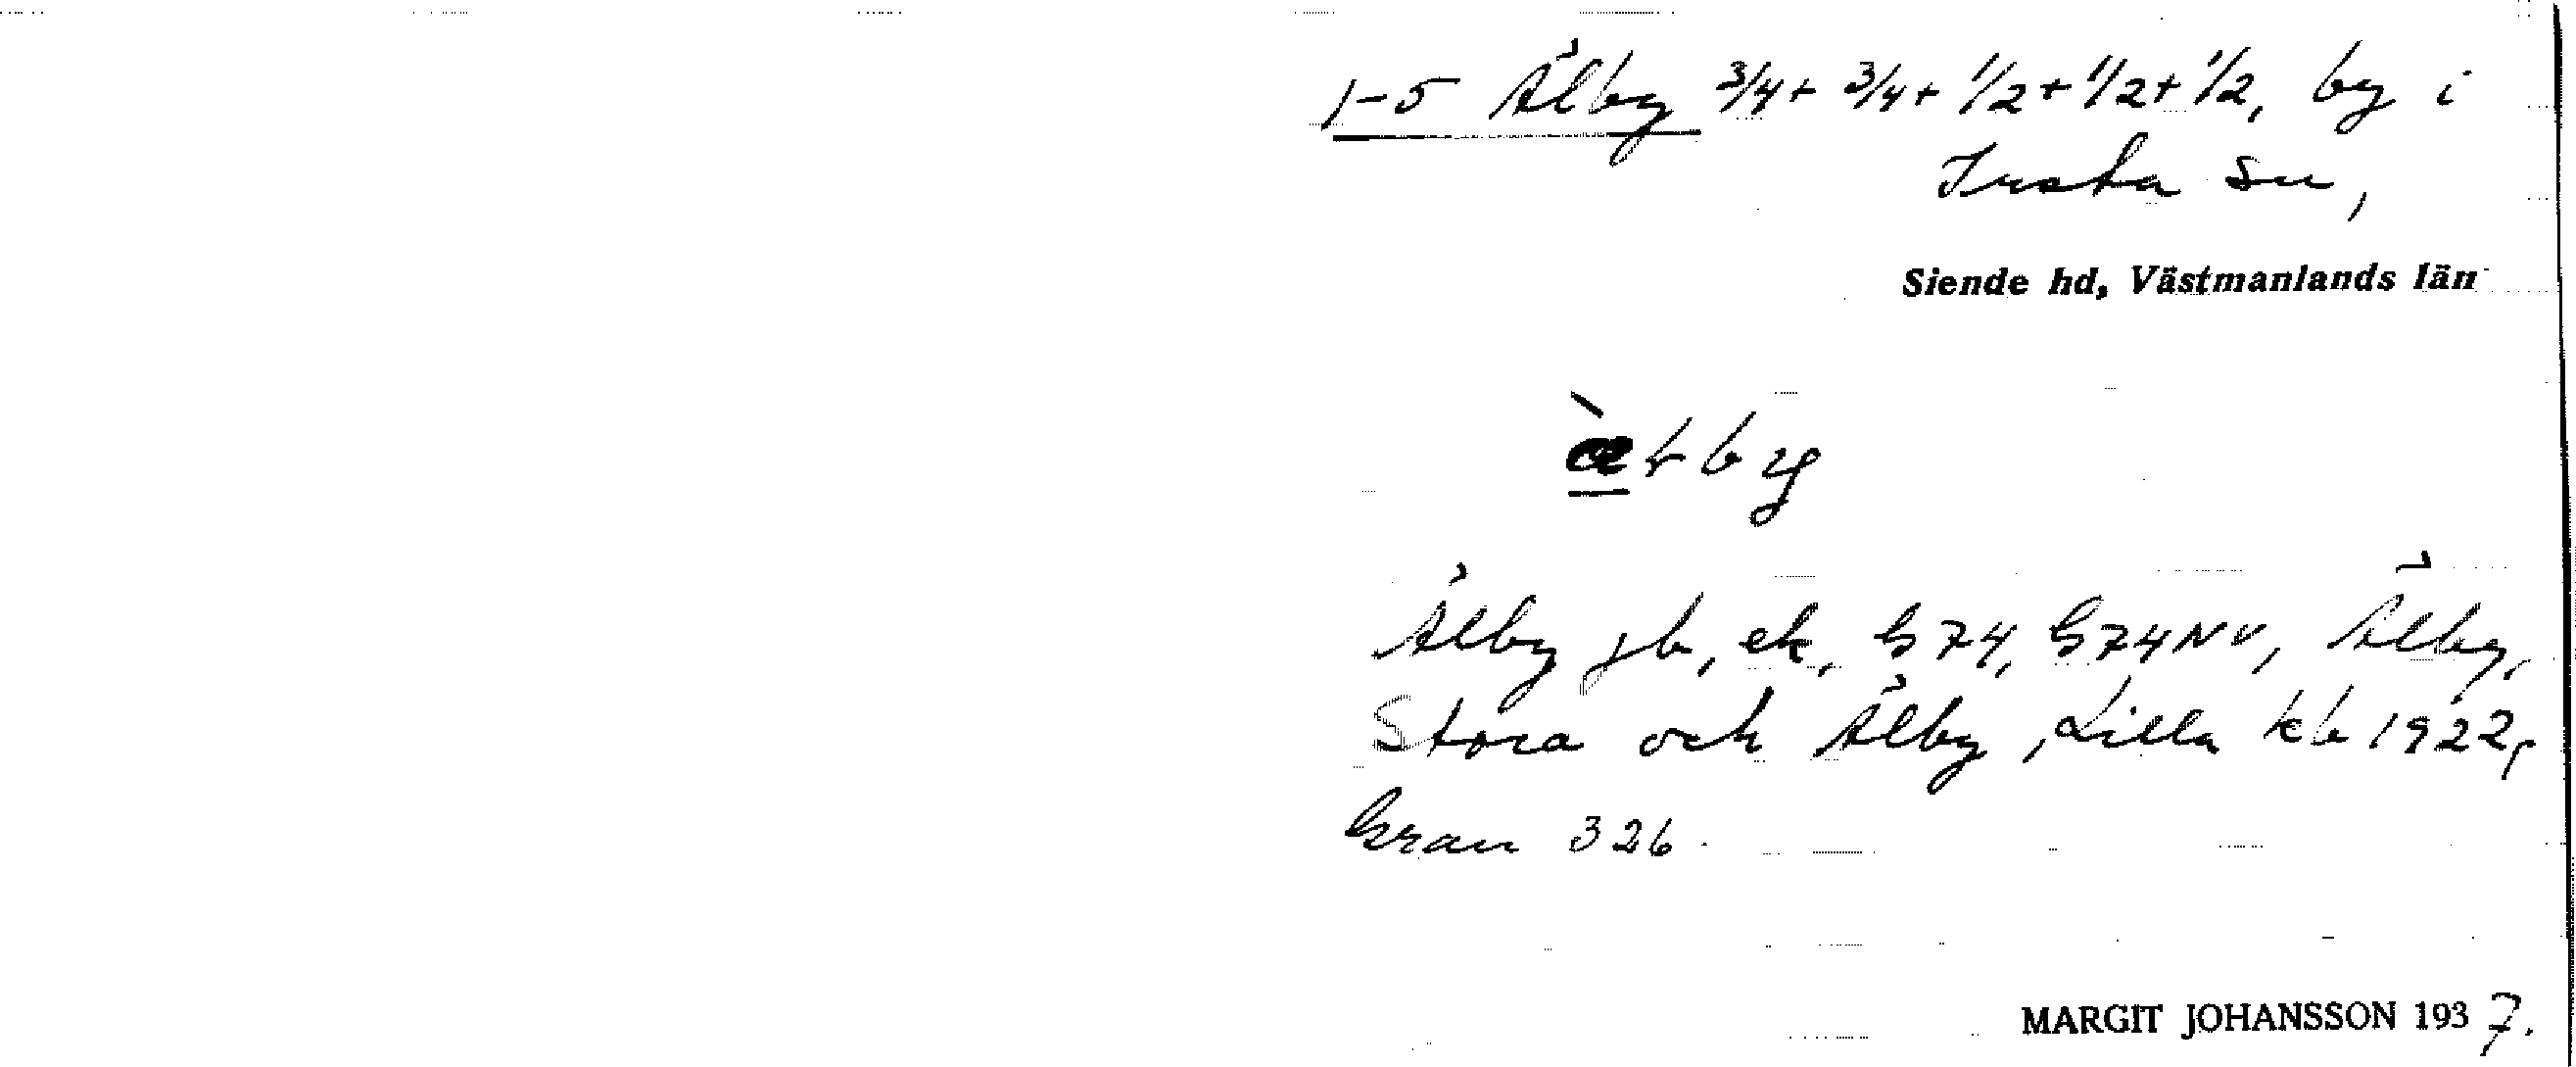 1-5 Älby 3/4 + 3/4 + 1/2 + 1/2 + 1/2, by i
Irsta sn,
Siende hd, Västmanlands län
Älby jb, ek, G74, G74NV, Älby,
Stora och Älby, Lilla kb 1922,
Gran 326.
MARGIT JOHANSSON 1937.